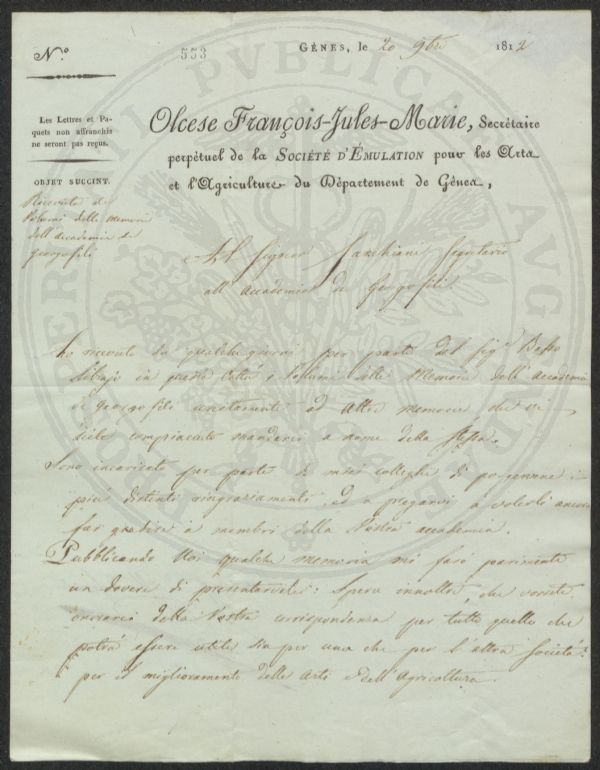 N.º
553
GÊNES, le 20 9bre 1812
Les Lettres et Pa-
quets non affranchis
ne seront pas reçus.
OBJET SUCCINT.
Ricevuta di
Volumi delle Memorie
dell'accademia di
Georgofili
Olcese François-Jules-Marie, Secrétaire
perpétuel de la SOCIÉTÉ D'ÉMULATION pour les Arts
et l'Agriculture du Département de Gênes,
Al Signor Segretario
all'accademia di Georgofili
Ho ricevuto da qualche giorni per parte del Sig.r
in questa Città i Volumi delle Memorie dell'Accademia
di georgofili unitamente ad altre memorie che vi
siete compiaciuto mandarci a nome della stessa.
Sono incaricato per parte di miei colleghi di porgervene i
più distinti ringraziamenti, ed a pregarvi a volerli ancora
far gradire a membri della Vostra accademia.
Pubblicando Noi qualche memoria mi farò parimente
un dovere di presentarvele: Spero innoltre, che vorrete
onorarci della Vostra corrispondenza per tutto quello che
potrà essere utile sia per una che per l'altra Società
per il miglioramento delle Arti e dell'Agricoltura.
PUBLICA